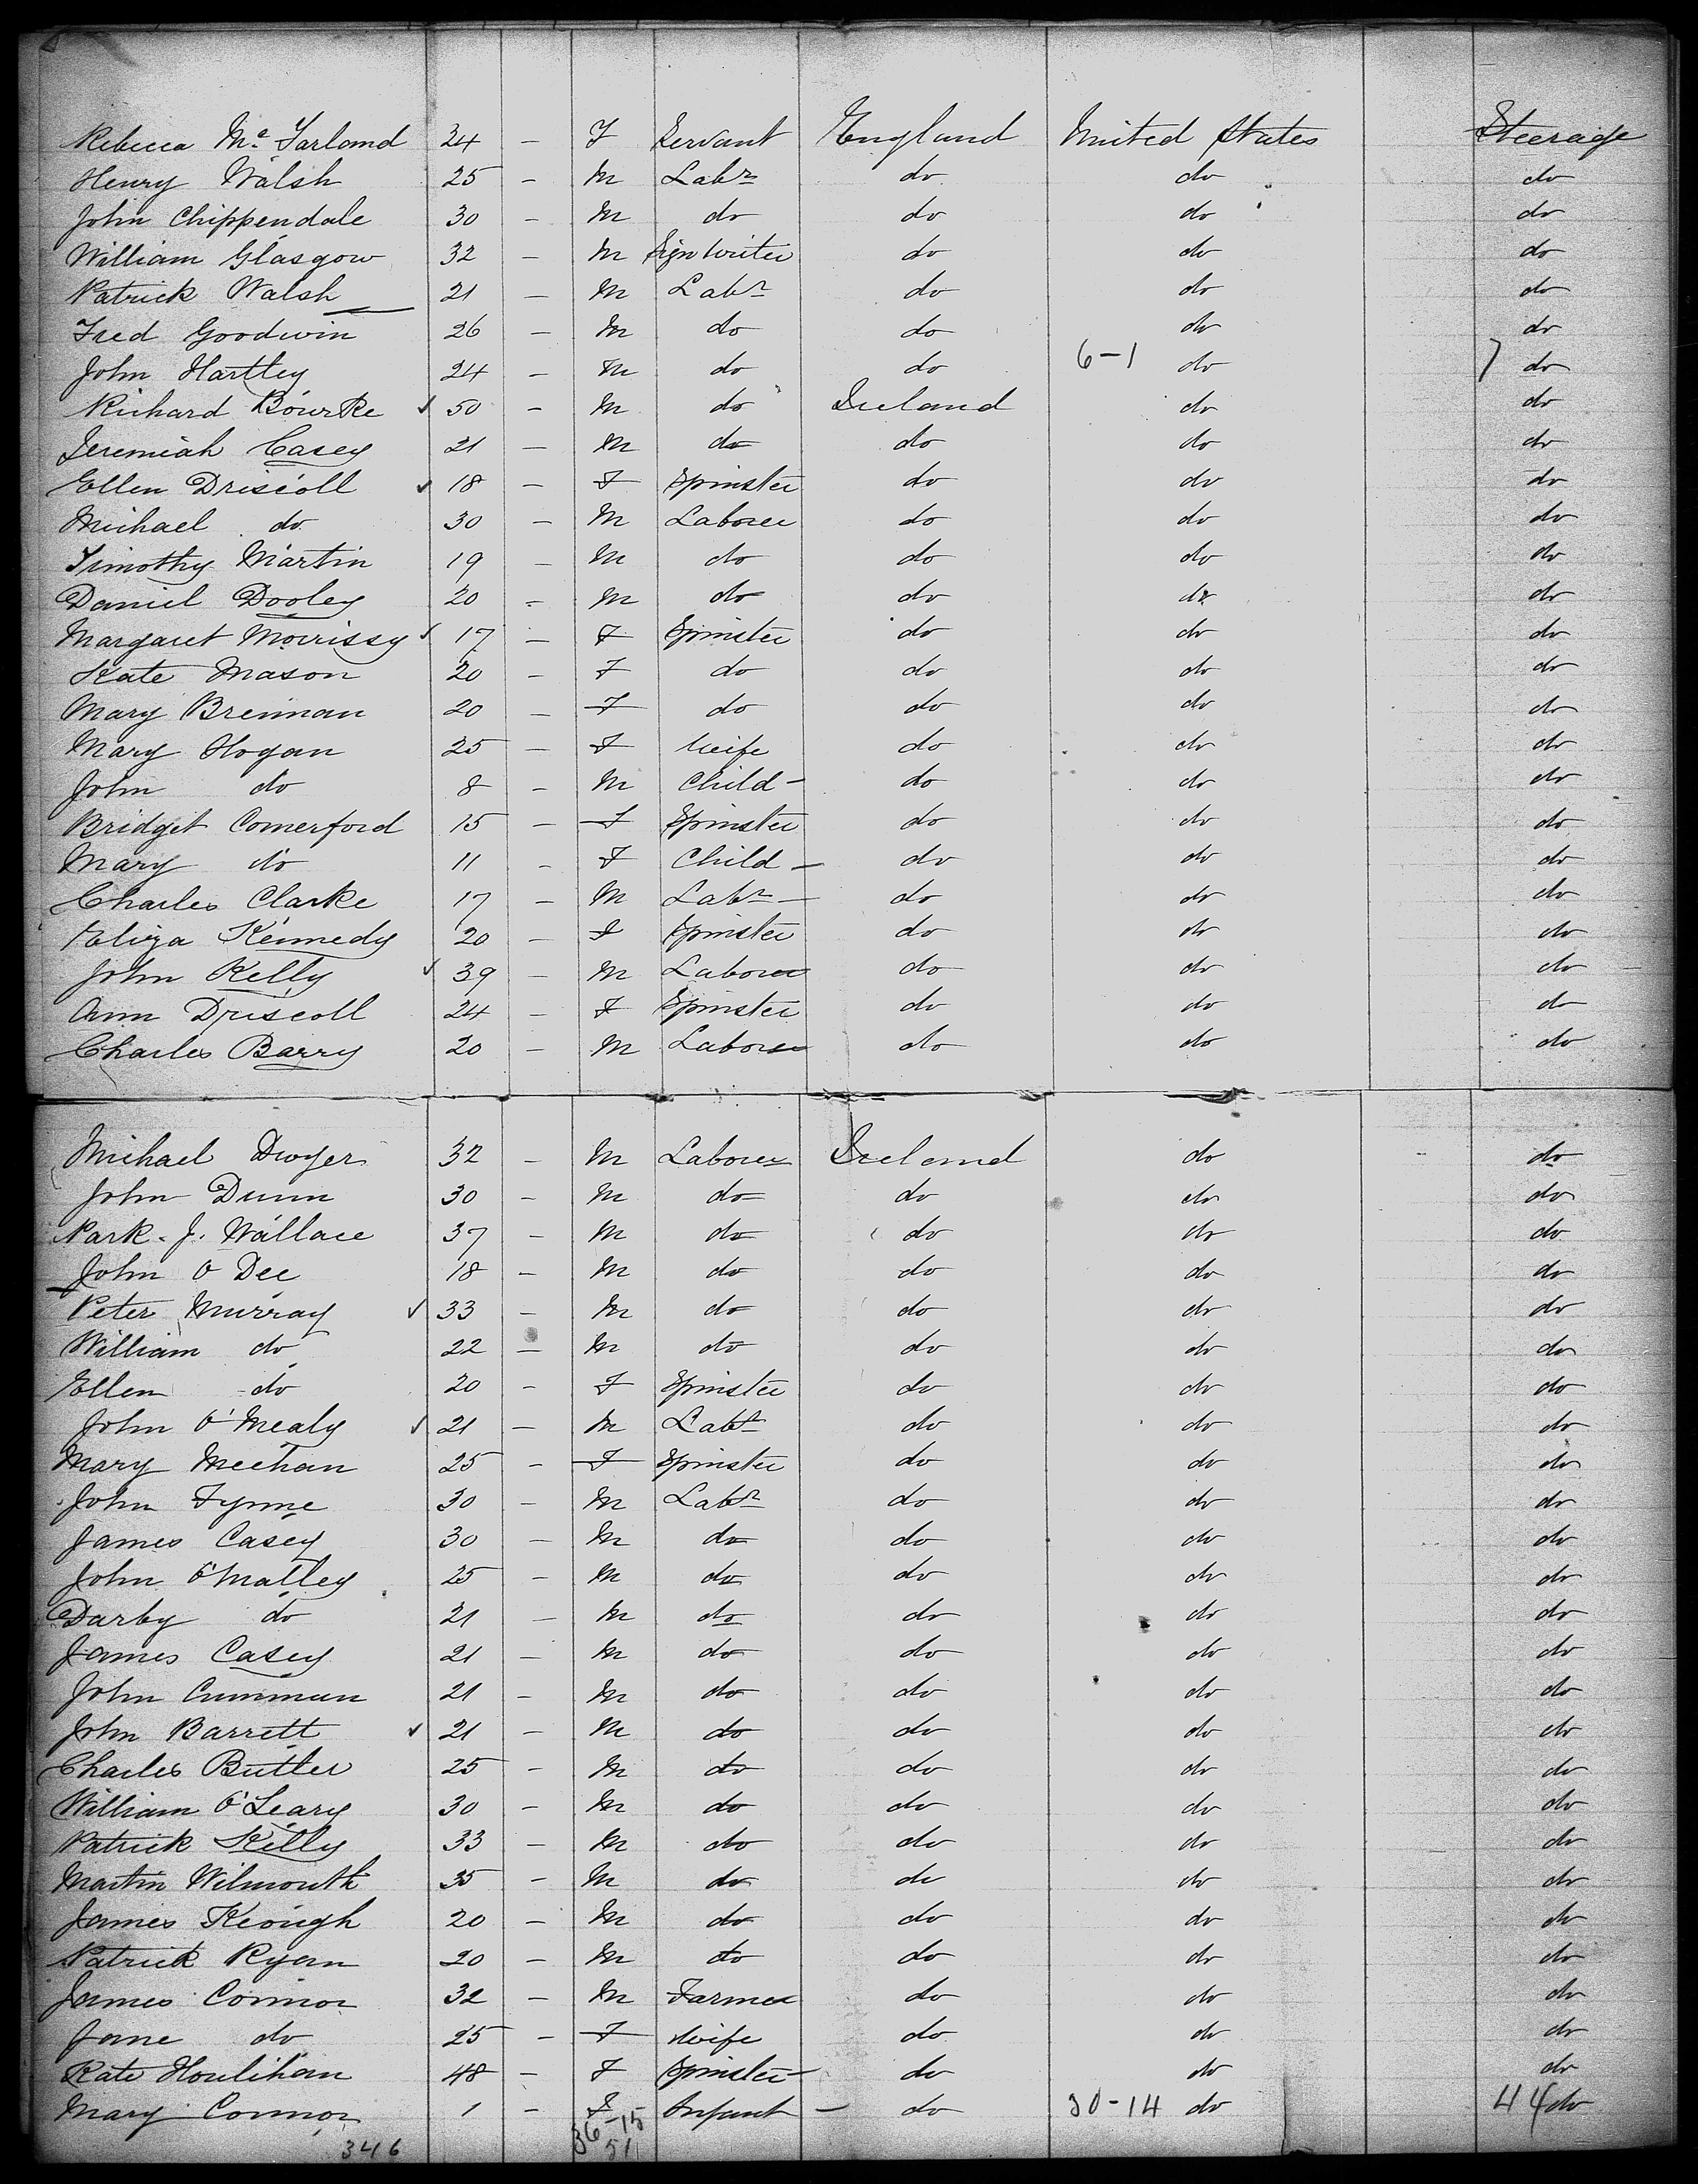 Rebecca Mc Farland 24 - F Servant England United States Steerage
Henry Walsh 25 - M Labr do do do
John Chippendale 30 - M do do do do
William Glasgow 32 - M Sign Writer do do do
Patrick Walsh 21 - M Labr do do do
Fred Goodwin 26 - M do do do do
John Hartley 24 - M do do 6-1 do 7 do
Richard Bourke ✓ 50 - M do Ireland do do
Jeremiah Casey 21 - M do do do do
Ellen Driscoll ✓ 18 - F Spinster do do do
Michael do 30 - M Laborer do do do
Timothy Martin 19 - M do do do do
Daniel Dooley 20 - M do do do do
Margaret Morrissy ✓ 17 - F Spinster do do do
Kate Mason 20 - F do do do do
Mary Brennan 20 - F do do do do
Mary Hogan 25 - F Wife do do do
John do 8 - M Child - do do do
Bridget Comerford 15 - F Spinster do do do
Mary do 11 - F Child - do do do
Charles Clarke 17 - M Labr - do do do
Eliza Kennedy 20 - F Spinster do do do
John Kelly ✓ 39 - M Laborer do do do
Ann Driscoll 24 - F Spinster do do do
Charles Barry 20 - M Laborer do do do
Michael Dwyer 32 - M Laborer Ireland do do
John Dunn 30 - M do do do do
Park. J. Wallace 37 - M do do do do
John O Dee 18 - M do do do do
Peter Murray ✓ 33 - M do do do do
William do 22 - M do do do do
Ellen do 20 - F Spinster do do do
John O'Mealy ✓ 21 - M Labr do do do
Mary Meehan 25 - F Spinster do do do
John Fynne 30 - M Labr do do do
James Casey 30 - M do do do do
John O'Malley 25 - M do do do do
Darby do 21 - M do do do do
James Casey 21 - M do do do do
John Cunman 21 - M do do do do
John Barrett ✓ 21 - M do do do do
Charles Butler 25 - M do do do do
William O'Leary 30 - M do do do do
Patrick Kelly 33 - M do do do do
Martin Wilmouth 35 - M do do do do
James Keough 20 - M do do do do
Patrick Ryan 20 - M do do do do
James Connor 32 - M Farmer do do do
Jane do 25 - F Wife do do do
Kate Houlihan 48 - F Spinster - do do do
Mary Connor 1 - F Infant - do 30-14 do 44 do
346 36-15
51